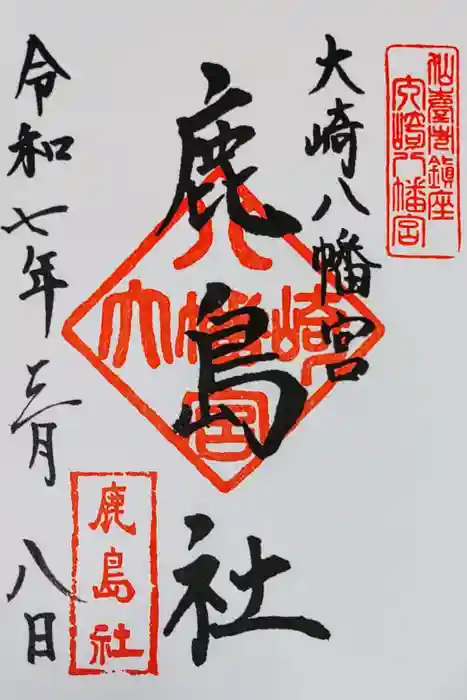 仙臺市鎮座
大崎八幡宮
大崎八幡宮
鹿島社
大崎八幡宮
令和七年十二月八日
鹿島社